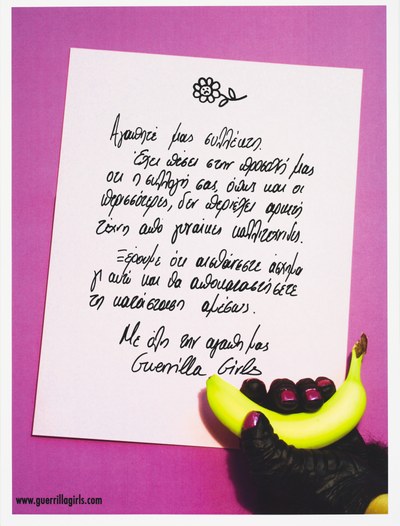 Αγαπητέ μας συλλέκτη.
Έχει πέσει στην προσοχή μας
ότι η συλλογή σας, όπως και οι
περισσότερες, δεν περιέχει αρκετή
τέχνη από γυναίκες καλλιτέχνιδες.
Ξέρουμε ότι αισθάνεστε άσχημα
γι αυτό και θα αποκαταστήσετε
τη κατάσταση αμέσως.
Με όλη την αγάπη μας
Guerrilla Girls
www.guerrillagirls.com